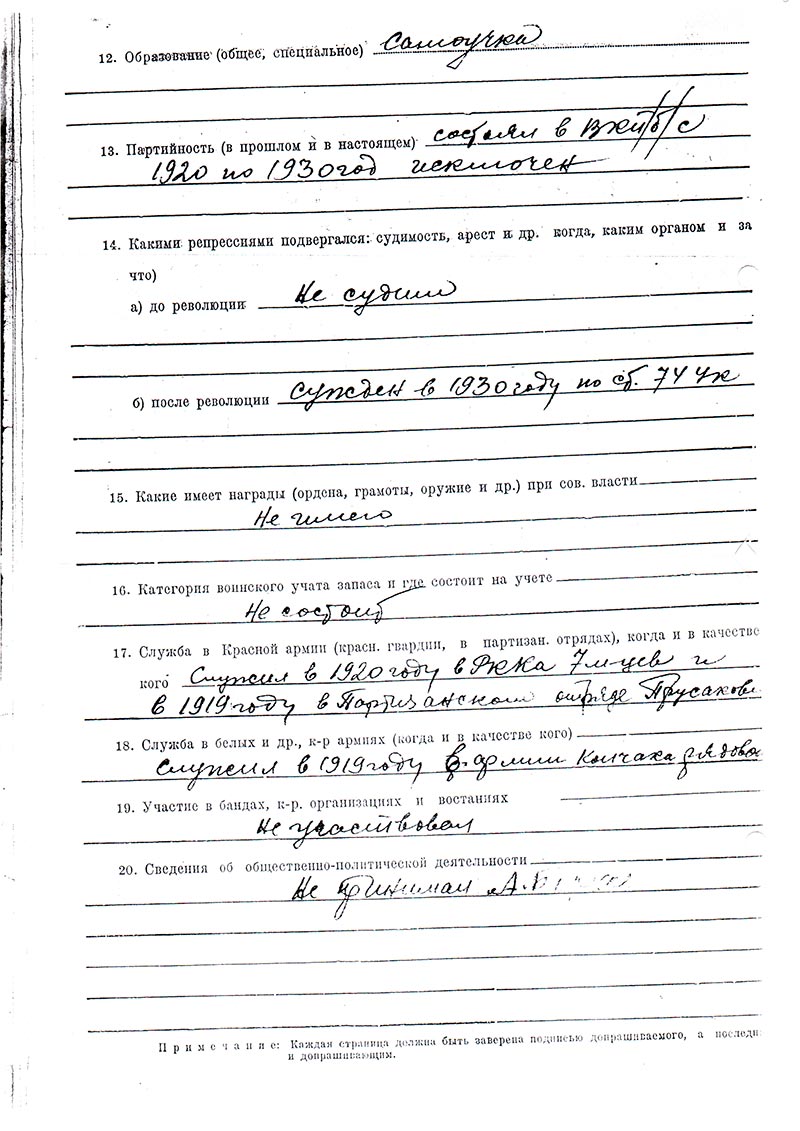 12. Образование (общее, специальное) самоучка
13. Партийность (в прошлом и в настоящем) состоял в ВКП/б/ с
1920 по 1930 год исключен
14. Какими репрессиями подвергался: судимость, арест и др. когда, каким органом и за
что)
а) до революции Не судим
б) после революции Сужден в 1930 году по ст. 74 УК
15. Какие имеет награды (ордена, грамоты, оружие и др.) при сов. власти
Не имею
16. Категория воинского учата запаса и где состоит на учете
Не состоит
17. Служба в Красной армии (красн. гвардии, в партизан. отрядах), когда и в качестве
кого Служил в 1920 году в РККА 7 м-цев и
в 1919 году в Партизанском отряде
18. Служба в белых и др., к-р армиях (когда и в качестве кого)
Служил в 1919 году в армии Колчака рядово
19. Участие в бандах, к-р. организациях и востаниях
Не участвовал
20. Сведения об общественно-политической деятельности
Не принимал
Примечание: Каждая страница должна быть заверена подписью допрашиваемого, а последн
и допрашивающим.